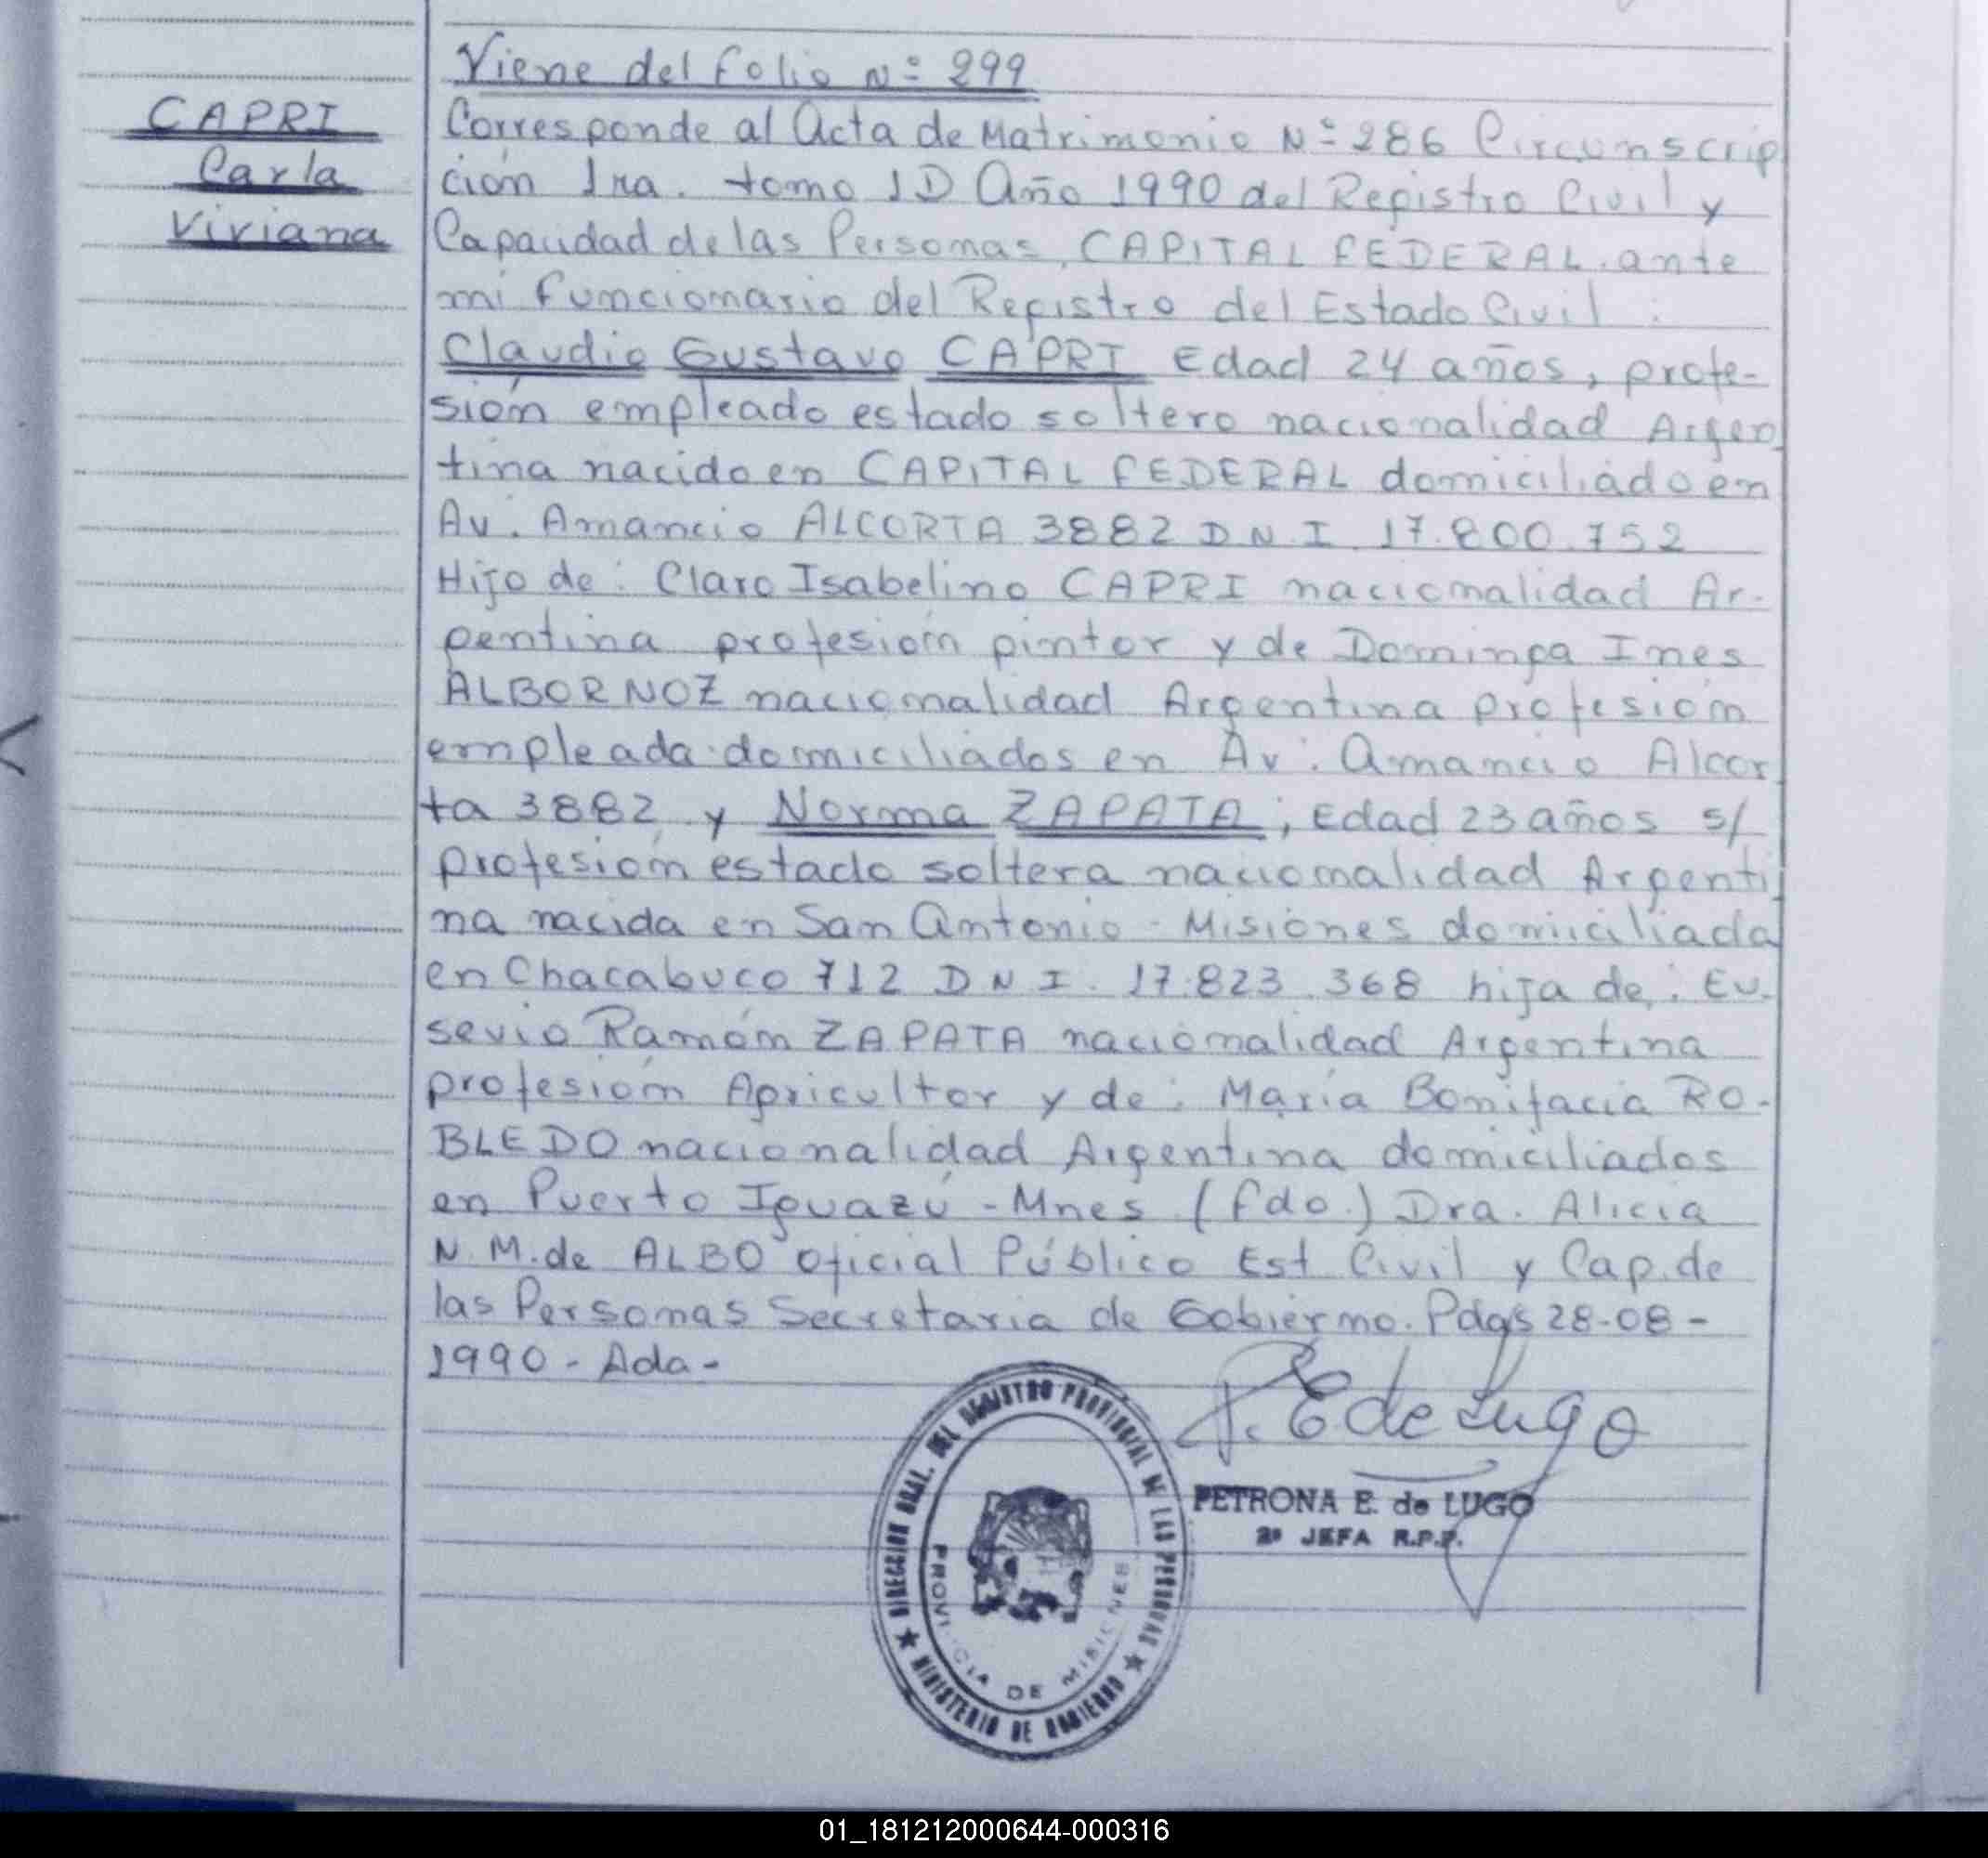 Viene del folio Nº 299
CAPRI
Carla
Viviana
Corresponde al Acta de Matrimonio Nº 286 Circunscrip
ción 1ra. tomo 1D Año 1990 del Registro Civil y
Capacidad de las Personas, CAPITAL FEDERAL. ante
mi funcionario del Registro del Estado Civil:
Claudio Gustavo CAPRI Edad 24 años, profe-
sión empleado estado soltero nacionalidad Argen
tina nacido en CAPITAL FEDERAL domiciliado en
Av. Amancio ALCORTA 3882 D N.I. 17.800.752
Hijo de: Claro Isabelino CAPRI nacionalidad Ar-
gentina profesión pintor y de Dominga Ines
ALBORNOZ nacionalidad Argentina profesión
empleada domiciliados en Av. Amancio Alcor
ta 3882 y Norma ZAPATA; Edad 23 años s/
profesión estado soltera nacionalidad Argenti
na nacida en San Antonio - Misiones domiciliada
en Chacabuco 712 D N I. 17.823.368 hija de: Eu-
sevio Ramón ZAPATA nacionalidad Argentina
profesión Agricultor y de: María Bonifacia RO-
BLEDO nacionalidad Argentina domiciliados
en Puerto Iguazú - Mnes (fdo.) Dra. Alicia
N. M. de ALBO oficial Público Est Civil y Cap. de
las Personas Secretaria de Gobierno. Pdas 28-08-
1990 - Ada-
P. E de Lugo
PETRONA E. de LUGO
2º JEFA R.P.P.
DIRECCION GRAL. DEL REGISTRO PROVINCIAL DE LAS PERSONAS
MINISTERIO DE GOBIERNO
PROVINCIA DE MISIONES
01_181212000644-000316